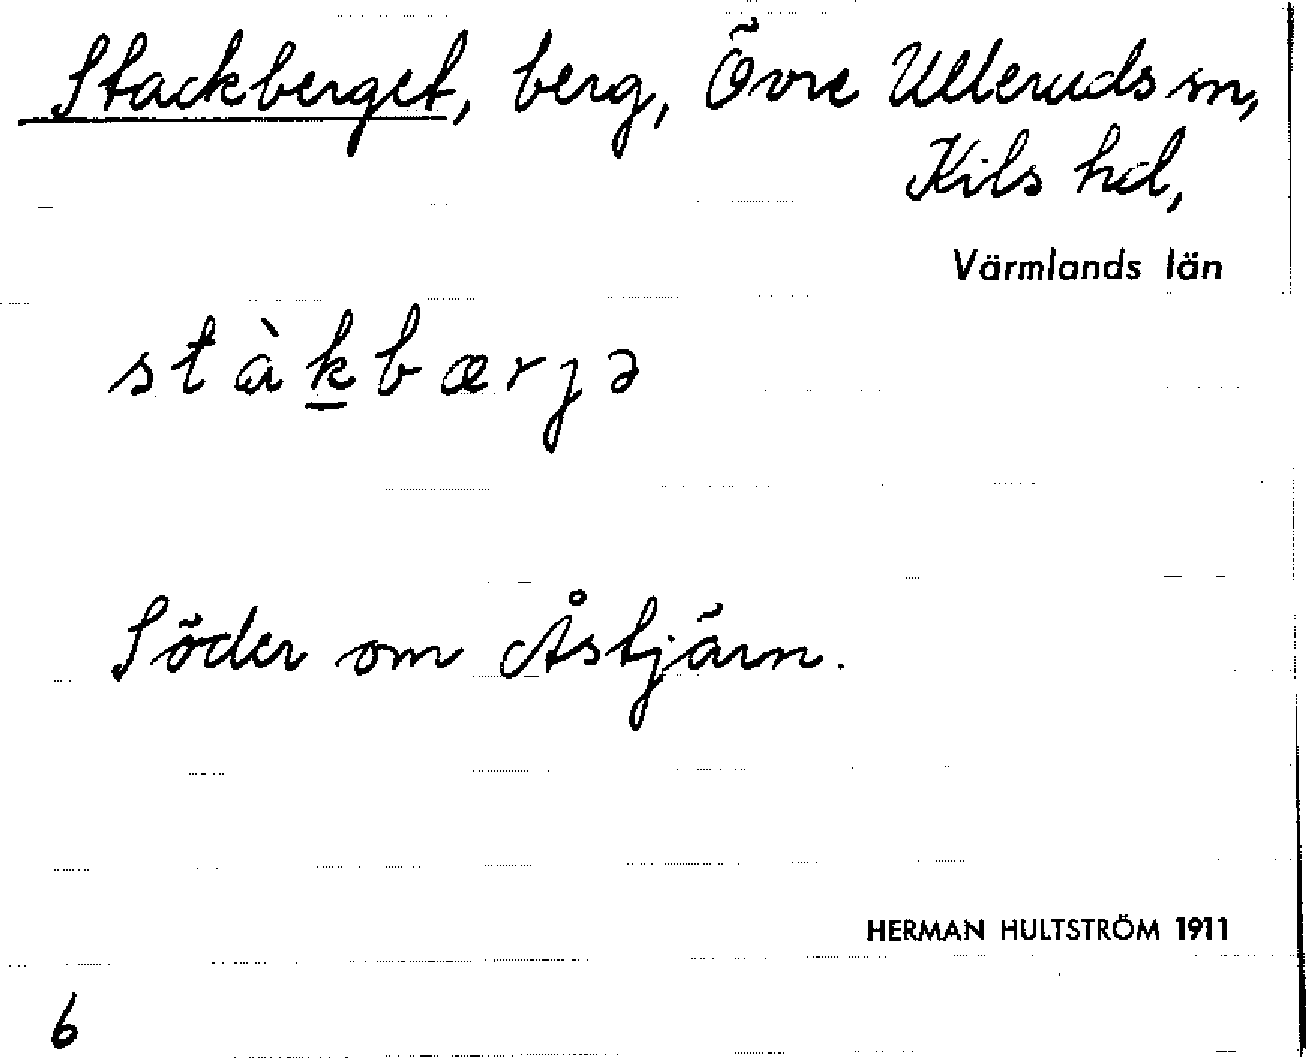 Stackberget, berg, Övre Ulleruds sn,
Kils hd,
Värmlands län
stàk̲bærjə
Söder om Åstjärn.
HERMAN HULTSTRÖM 1911
6